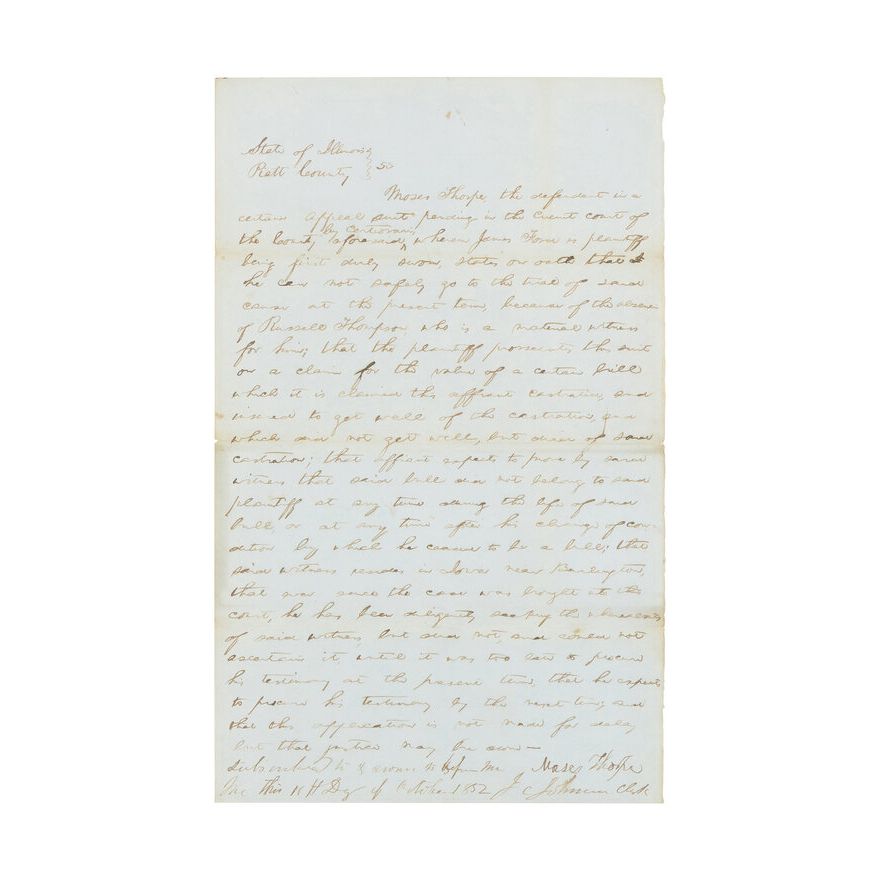 State of Illinois
Piatt County } SS
Moses Thorpe, the defendant in a
certain appeal suit pending in the Circuit court of
the County aforesaid, by certiorari wherein James is plaintiff
being first duly sworn, states on oath that
he can not safely go to the trial of said
cause at the present term, because of the absence
of Russell Thompson who is a material witness
for him; that the plaintiff prosecutes this suit
on a claim for the value of a certain bull
which it is claimed this affiant castrated, and
insured to get well of the castration, and
which did not get well, but died of said
castration; that affiant expects to prove by said
witness that said bull did not belong to said
plaintiff at any time during the life of said
bull, or at any time after his change of con-
dition by which he ceased to be a bull; that
said witness resides in Iowa near Burlington,
that ever since the case was brought to this
court, he has been diligently seeking the whereabouts
of said witness, but did not, and could not
ascertain it, until it was too late to procure
his testimony at the present term, that he expects
to procure his testimony by the next term, and
that this application is not made for delay
but that justice may be done —
Subscribed to & sworn to before me Moses Thorpe
this Day of October 1852 J C Johnson Clerk